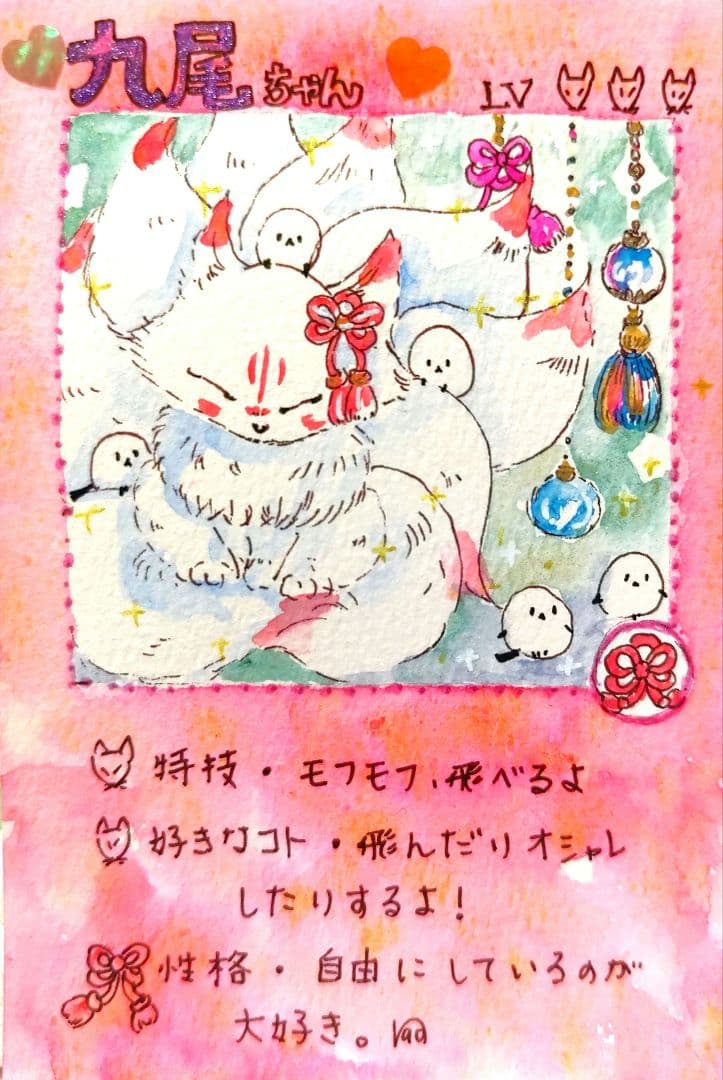 九尾ちゃん LV
特技・モフモフ、飛べるよ
好きなコト・飛んだりオシャレ
したりするよ!
性格・自由にしているのが
大好き。